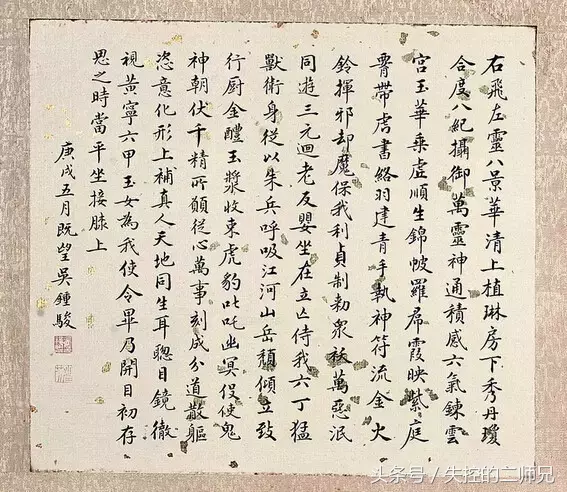 右飛左靈八景華清上植琳房下秀丹瓊
合度八紀攝御萬靈神通積感六氣鍊雲
宮玉華乘虛順生錦帔羅帬霞映紫庭
霄帶虎書絡羽建青手執神符流金火
鈴揮邪却魔保我利貞制勅衆祅萬惡泯
同遊三元迴老友嬰坐在立亾侍我六丁猛
獸衛身從以朱兵呼吸江河山岳頹傾立致
行厨金醴玉漿收束虎豹叱吒幽冥役使鬼
神朝伏千精所願從心萬事刻成分道散軀
恣意化形上補真人天地同生耳聰目鏡徹
視黃寧六甲玉女為我使令畢乃開目初存
思之時當平坐接膝上
庚戌五月既望吳鍾駿
头条号 / 失控的二师兄